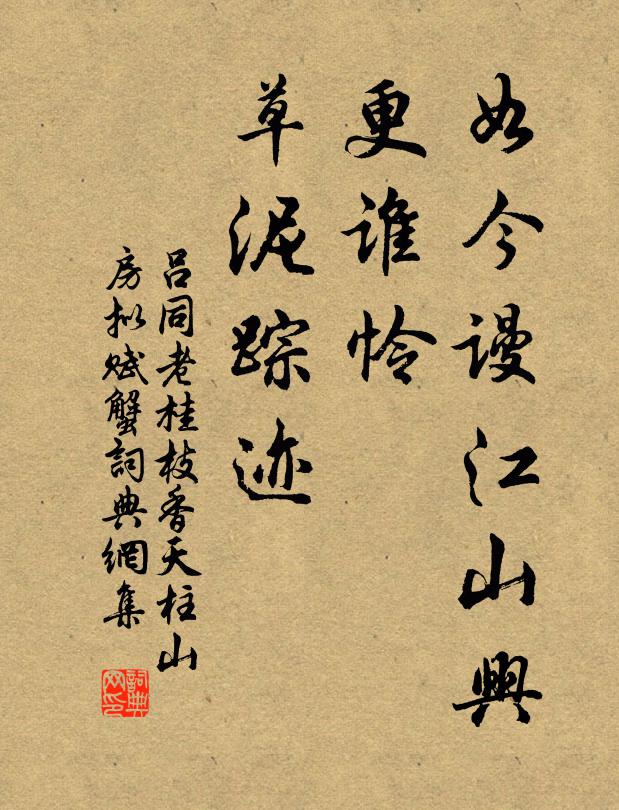 如今谩江山興
更谁怜
草泥踪迹
吕同老桂枝香天柱山
房拟赋蟹詞典網集
詞典网印